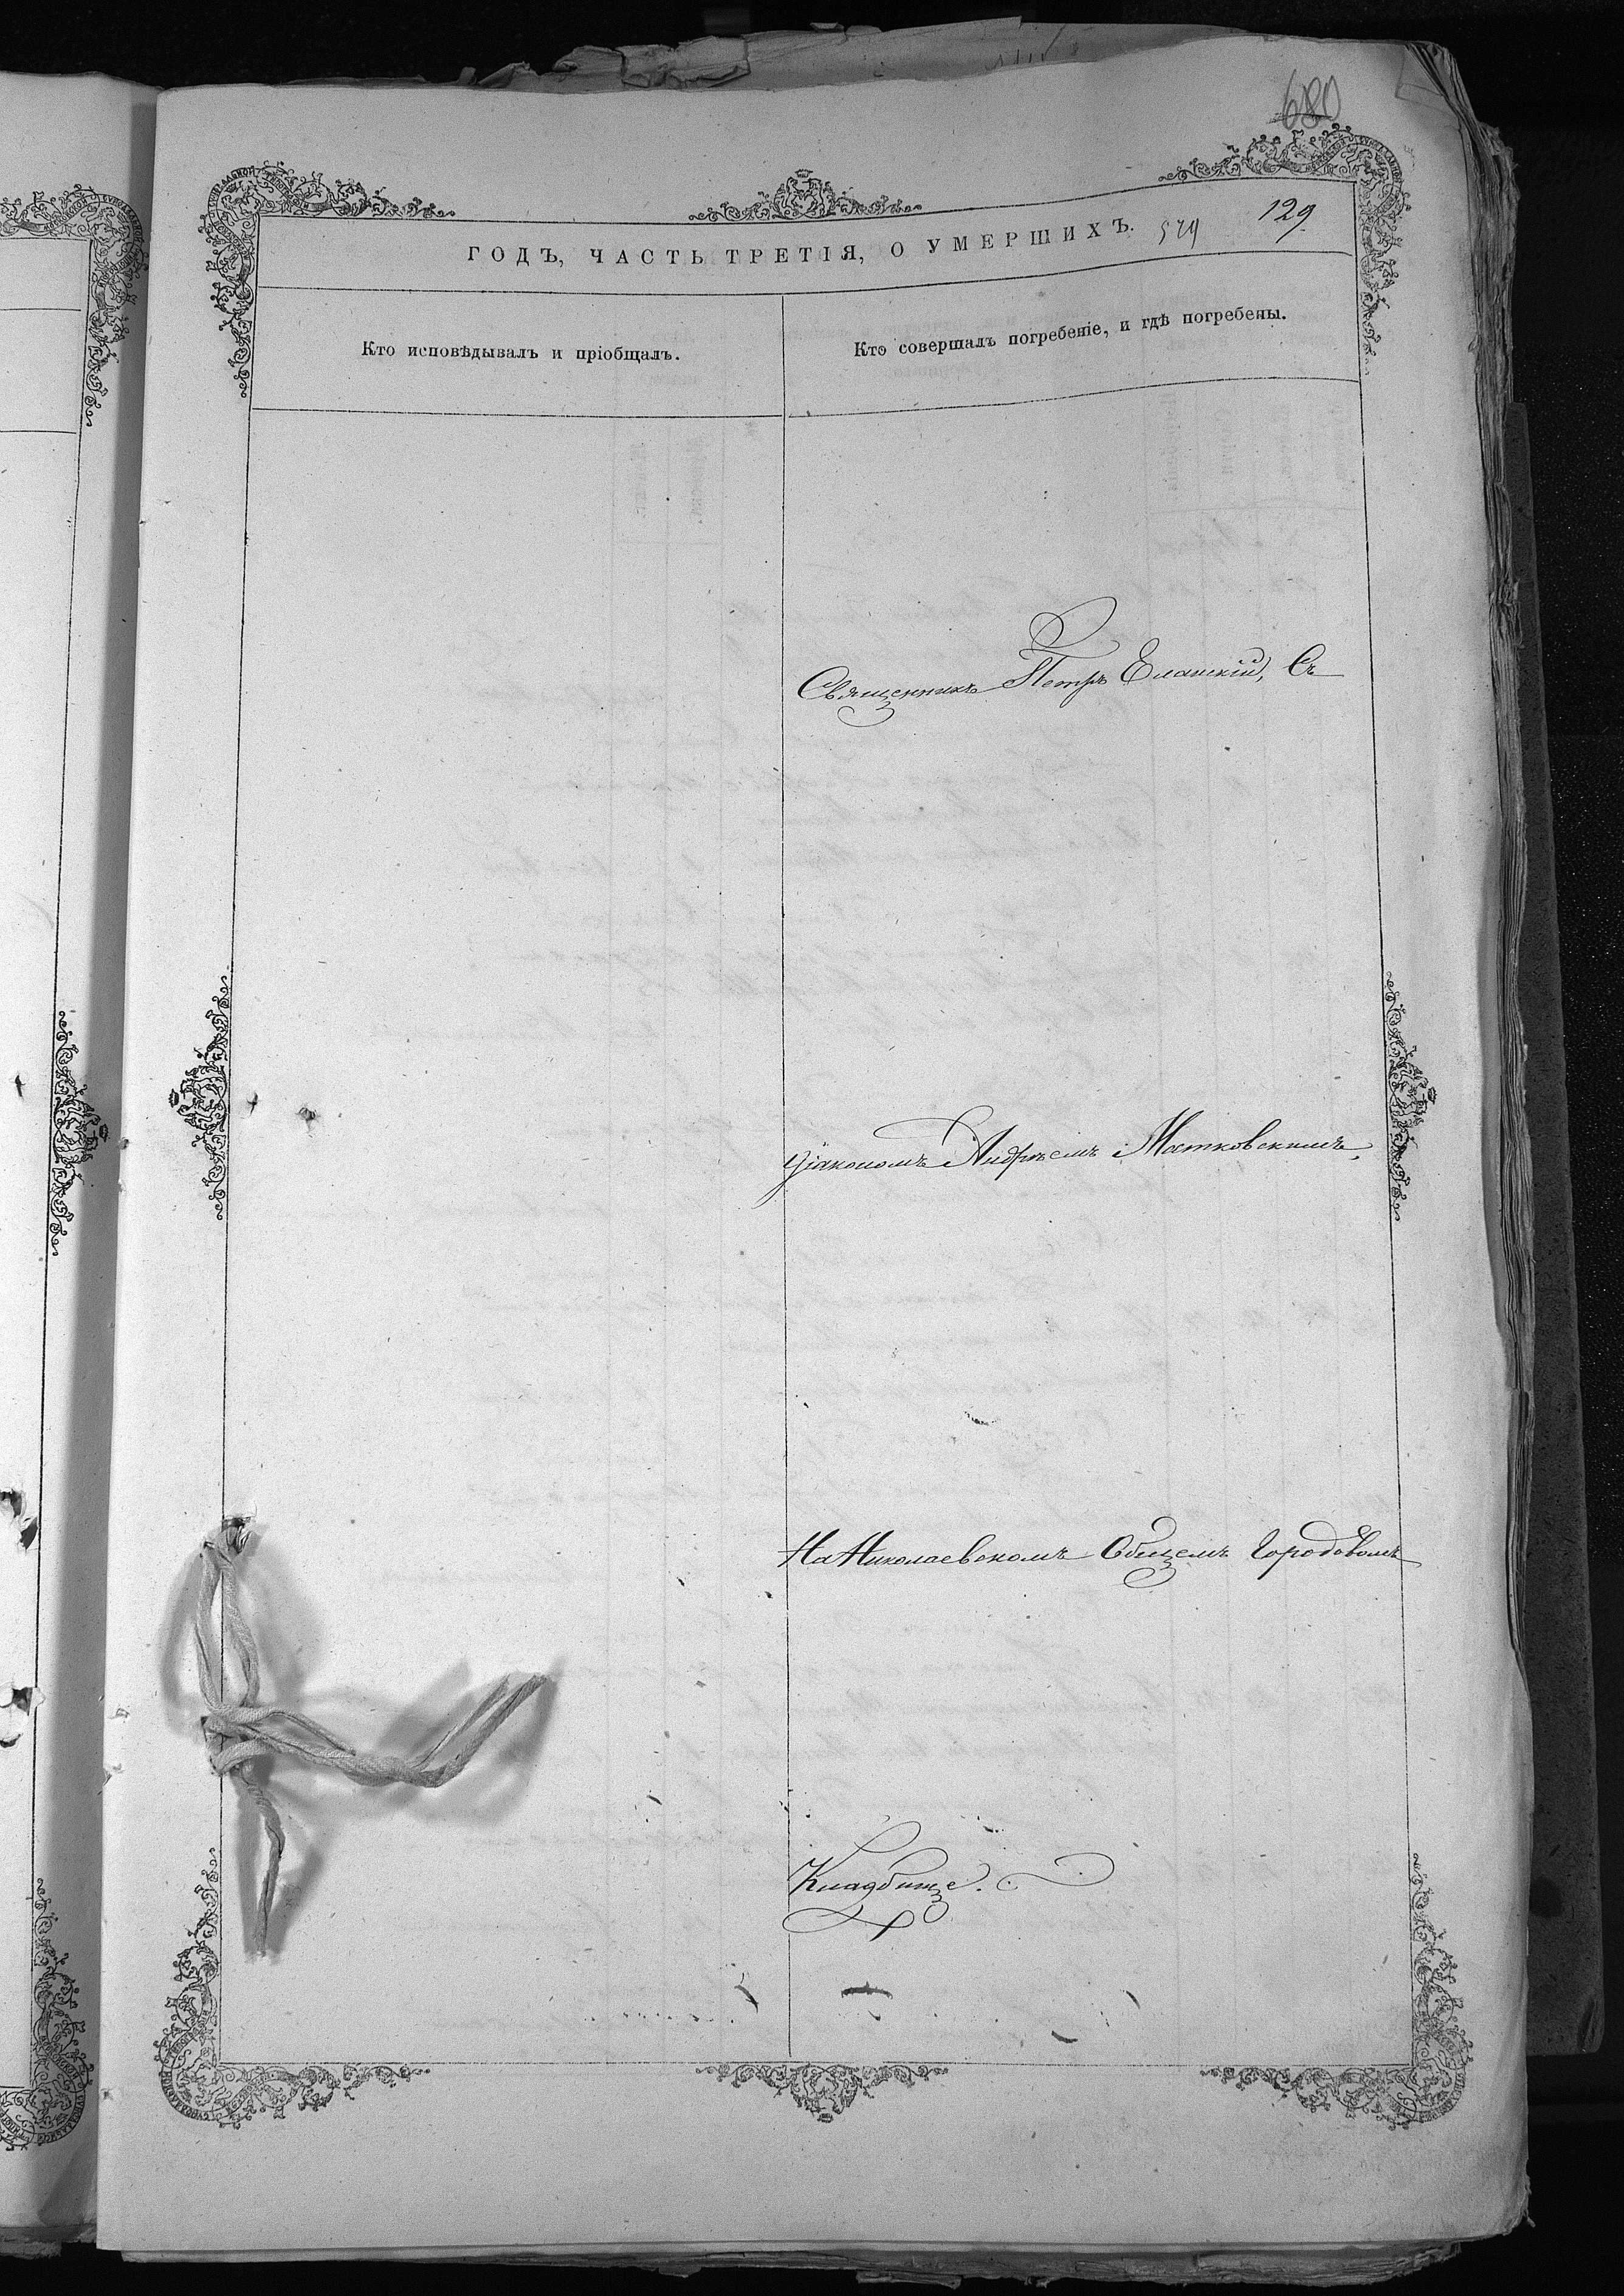 680
ГОДЪ, ЧАСТЬ ТРЕТІЯ, О УМЕРШИХЪ. 579 129.
Кто исповѣдывалъ и пріобщалъ.
Кто совершалъ погребеніе, и гдѣ погребены.
Священникъ Петръ Еланскій, Съ
діакономъ Андреемъ Мостковскимъ,
На Николаевскомъ Общемъ Городовомъ
Кладбище.